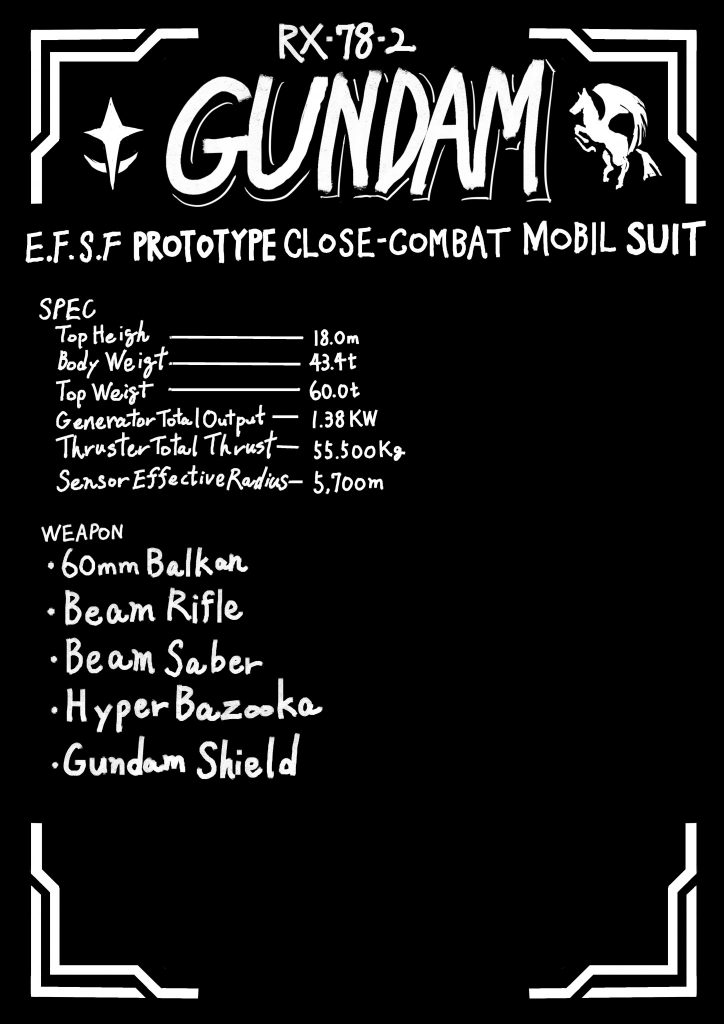 RX-78-2
GUNDAM
E.F.S.F PROTOTYPE CLOSE-COMBAT MOBIL SUIT
SPEC
Top Heigh 18.0m
Body Weigt 43.4t
Top Weist 60.0t
Generator Total Output 1.38KW
Thruster Total Thrust 55.500Kg
Sensor Effective Radius 5,700m
WEAPON
・60mm Balkan
・Beam Rifle
・Beam Saber
・Hyper Bazooka
・Gundam Shield